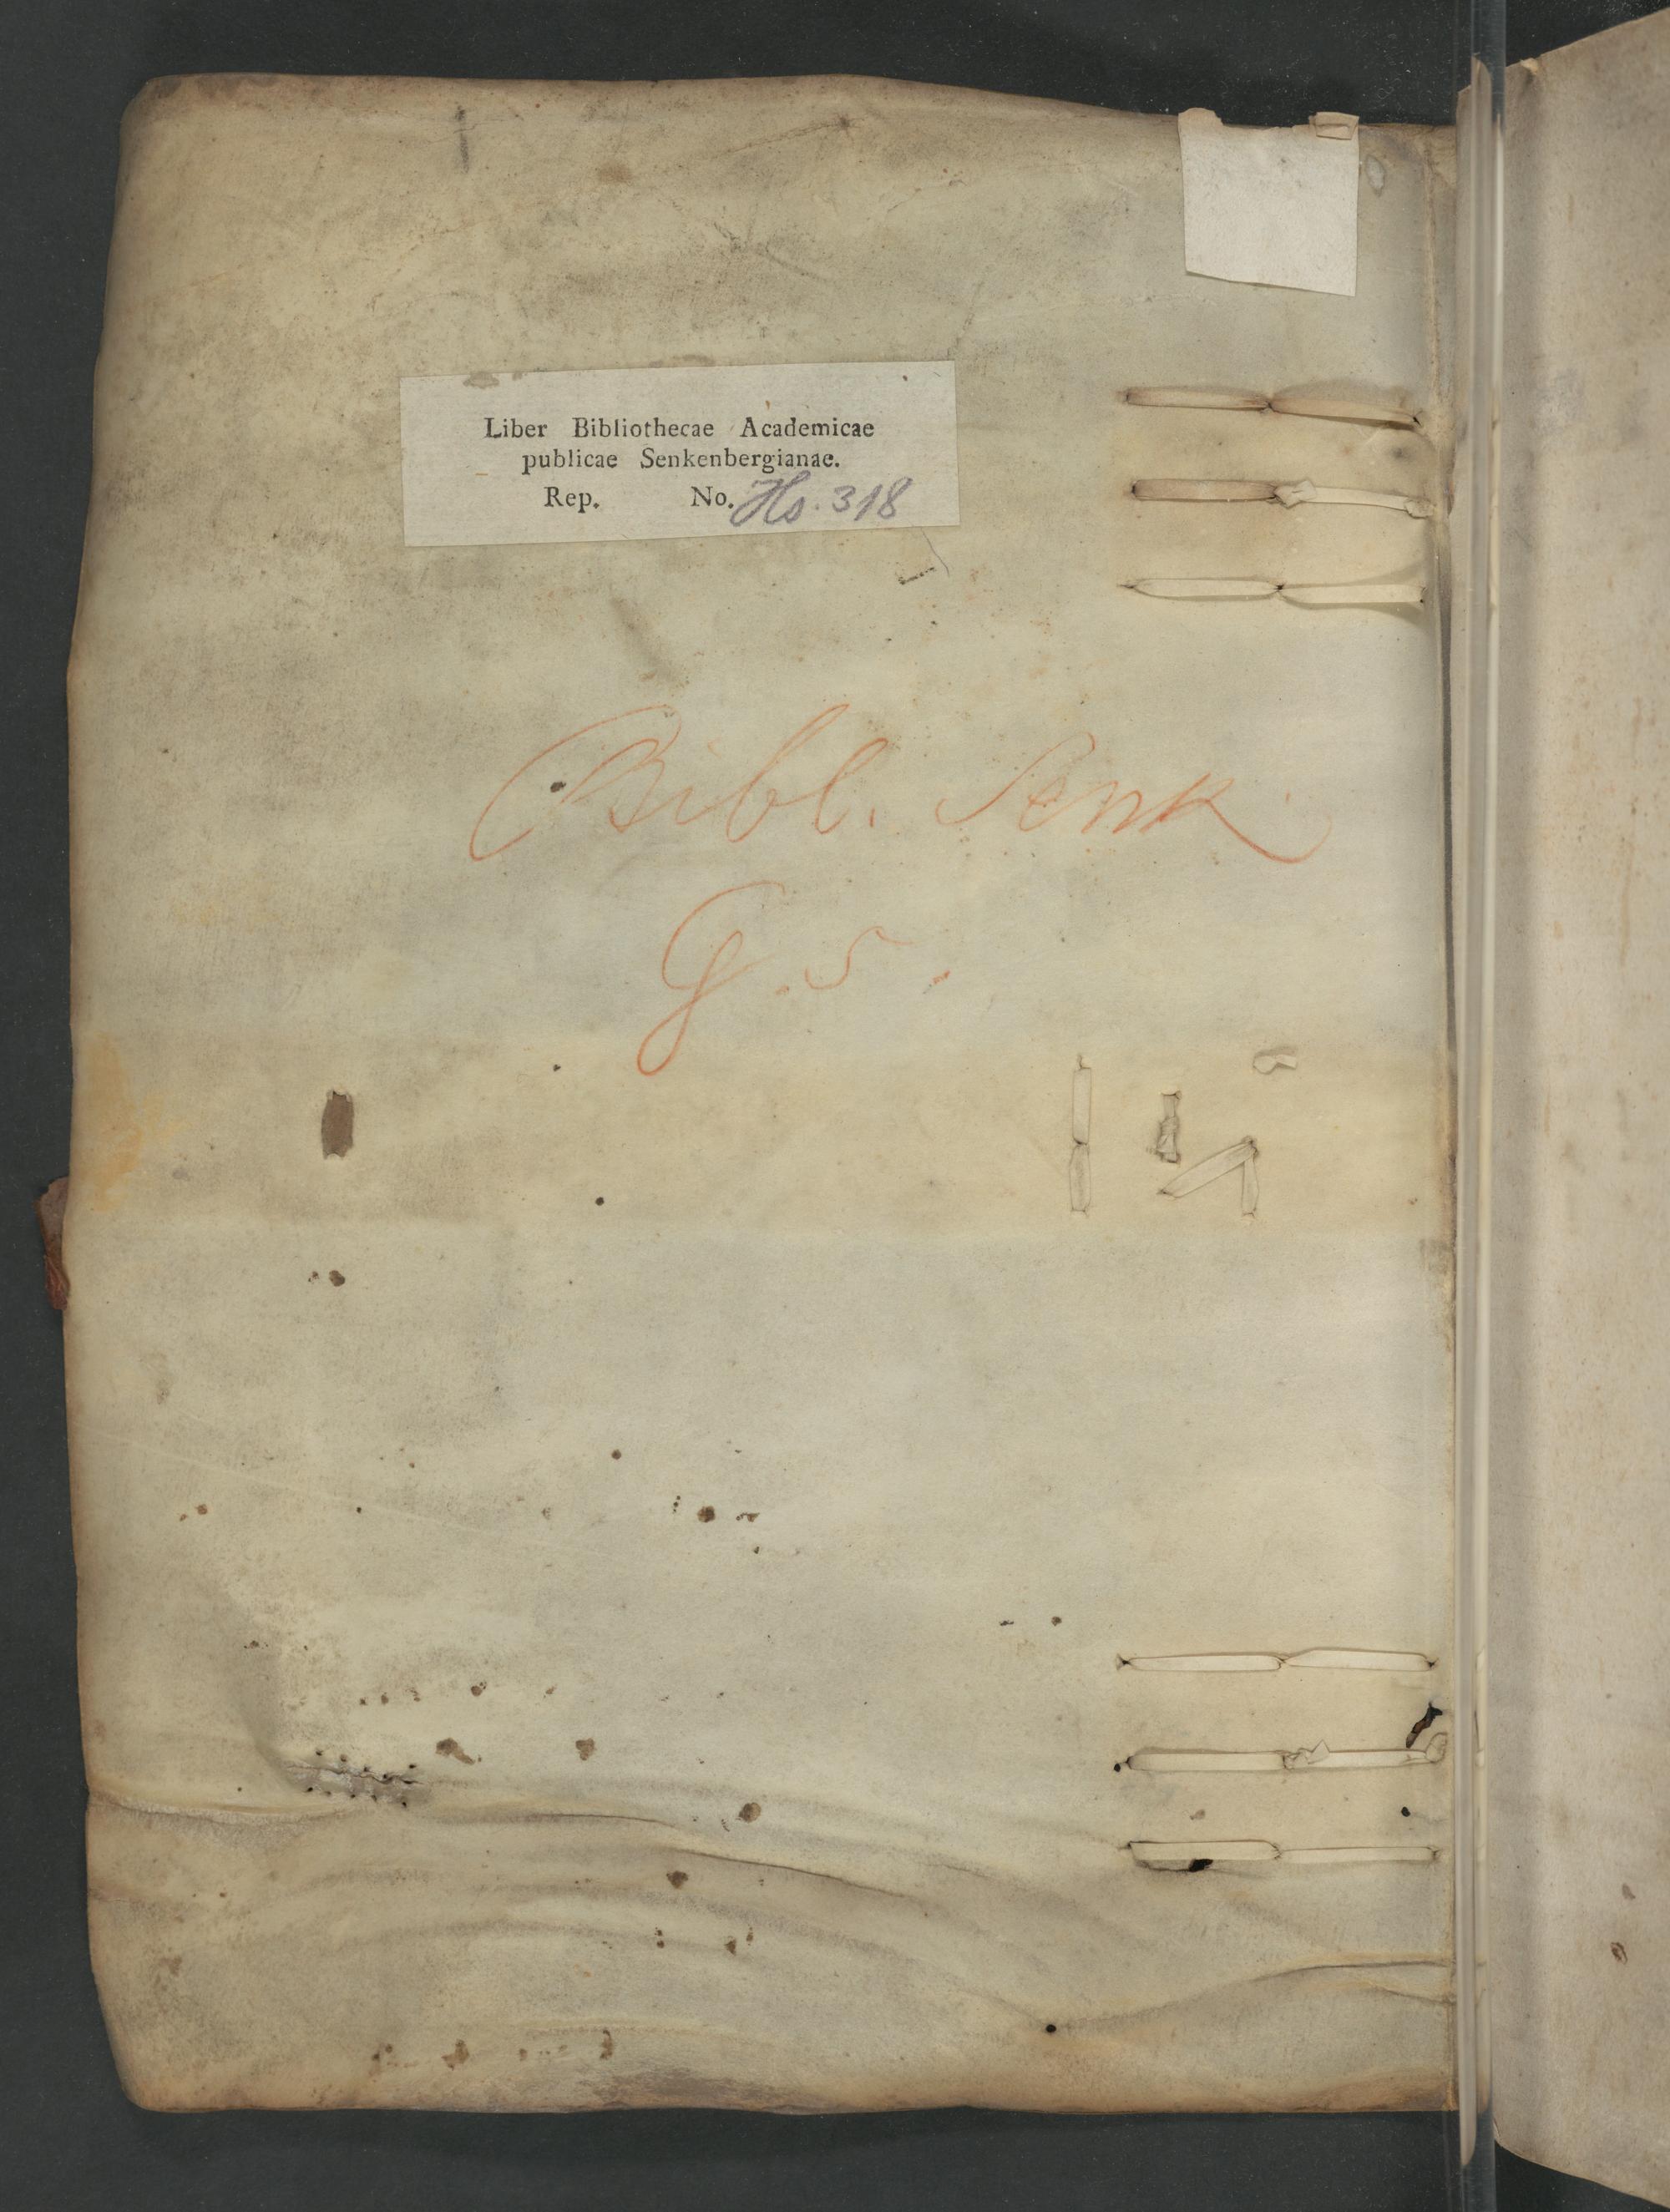 Liber Bibliothecae Academicae
publicae Senkenbergianae.
Rep. No. Hs. 318
Bibl. Senk
G. 5.